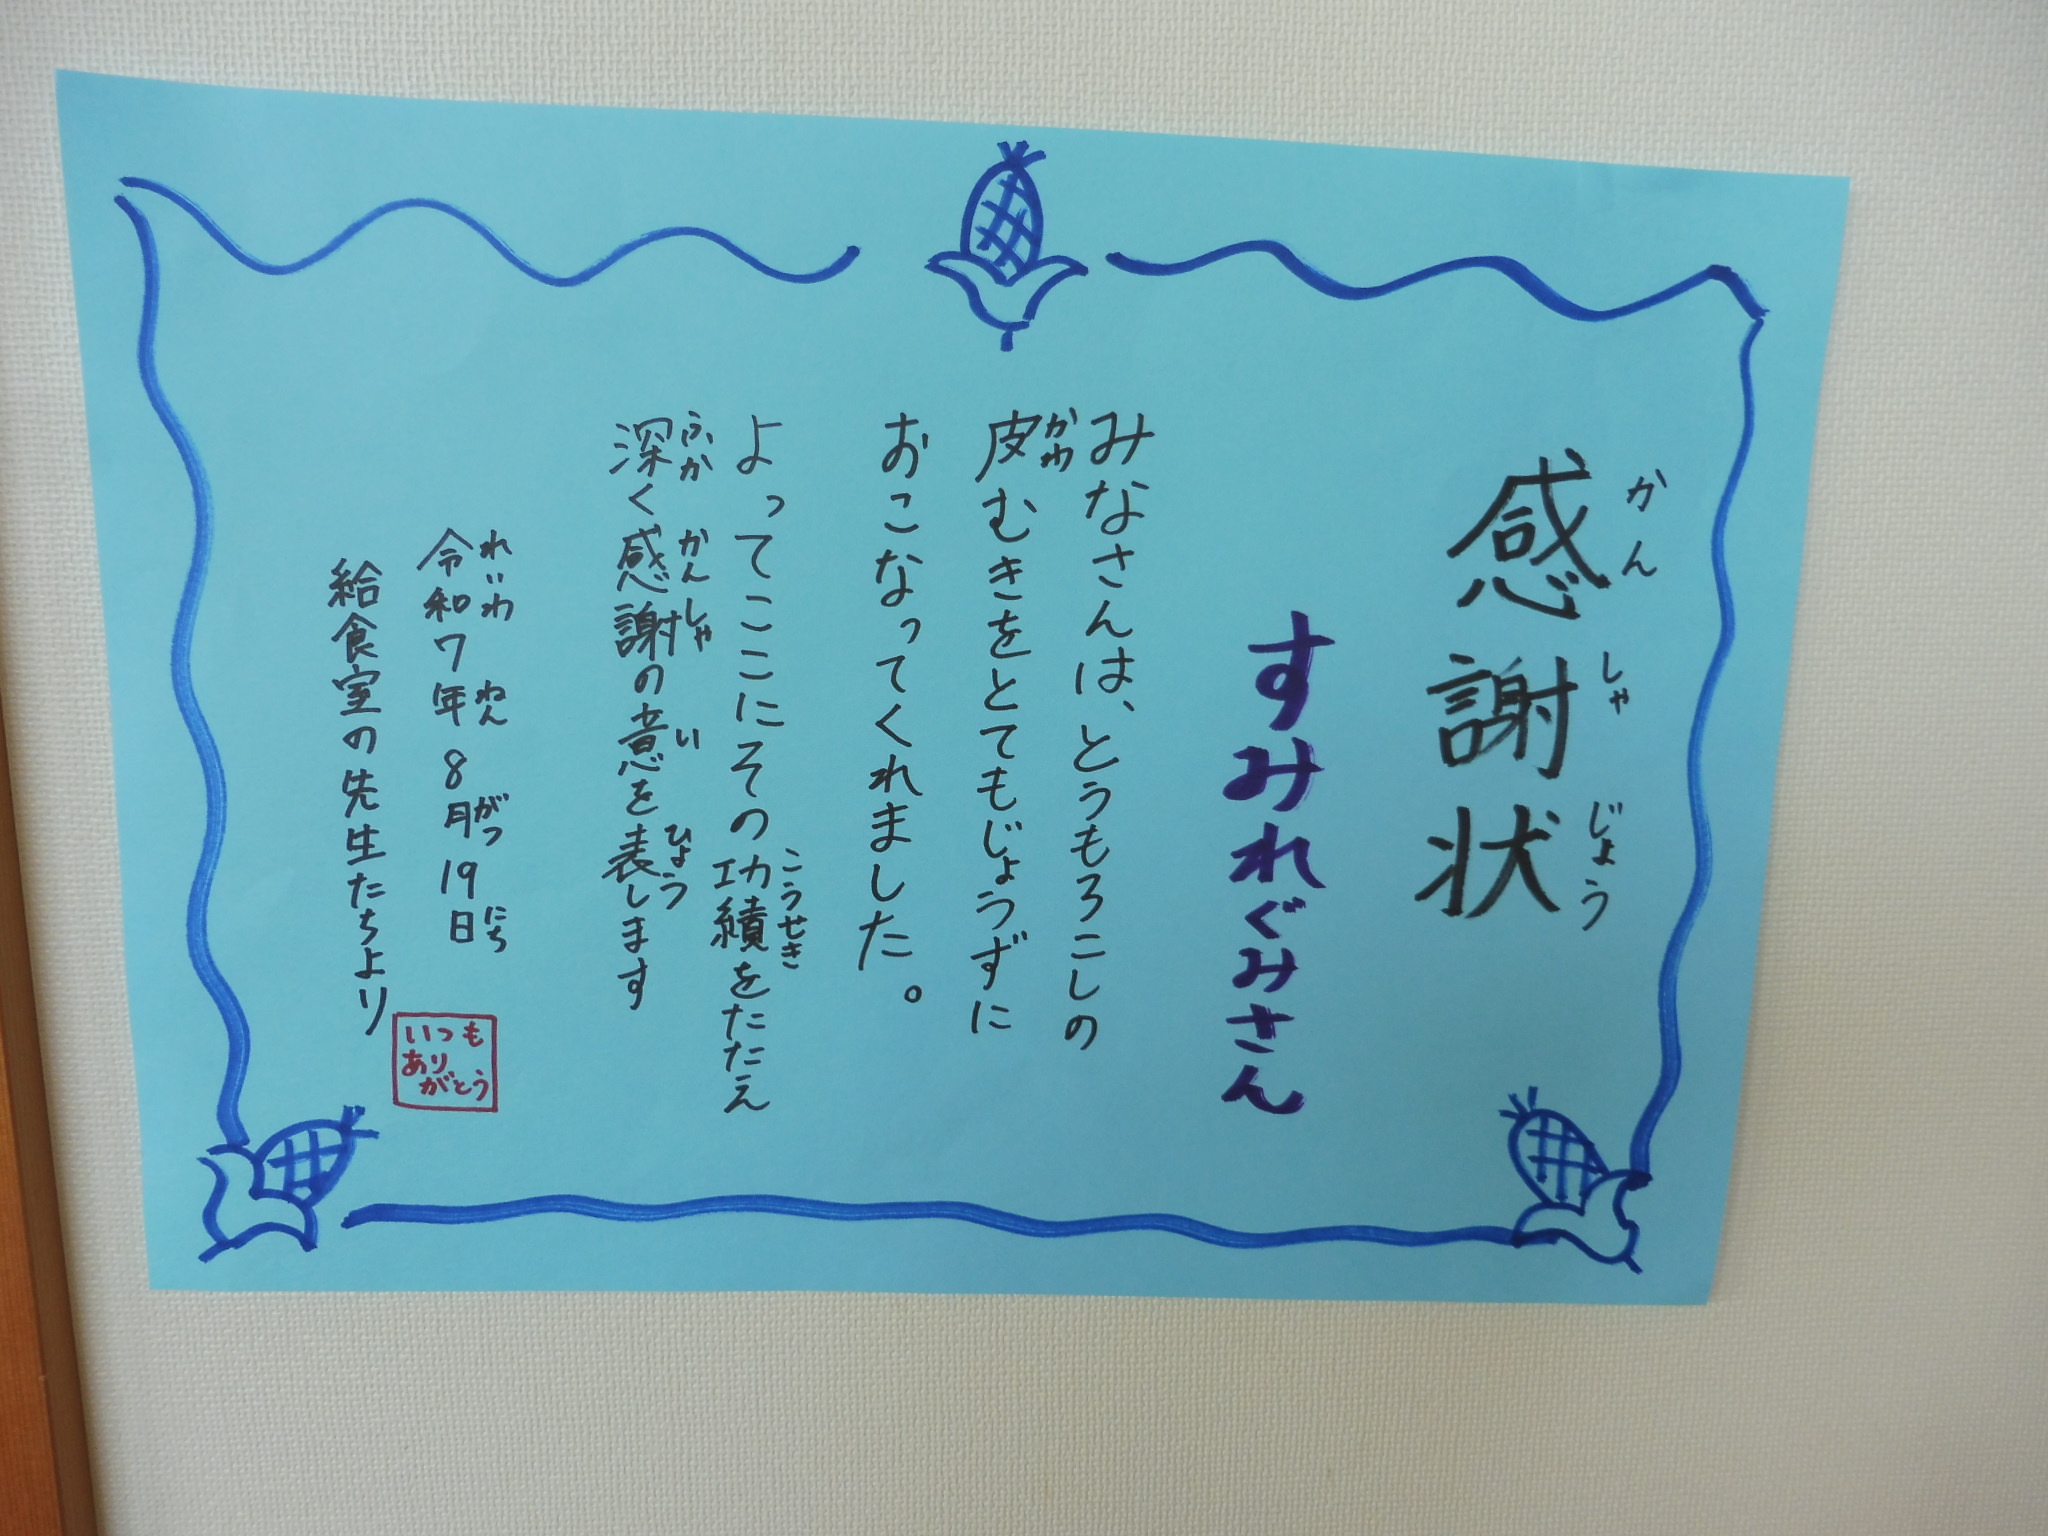 感謝状
かんしゃじょう
すみれぐみさん
みなさんは、とうもろこしの
皮むきをとてもじょうずに
かわ
おこなってくれました。
よってここにその功績をたたえ
こうせき
深く感謝の意を表します
ふか かんしゃ い ひょう
令和7年8月19日
れいわ ねん がつ にち
給食室の先生たちより
いつも
ありがとう